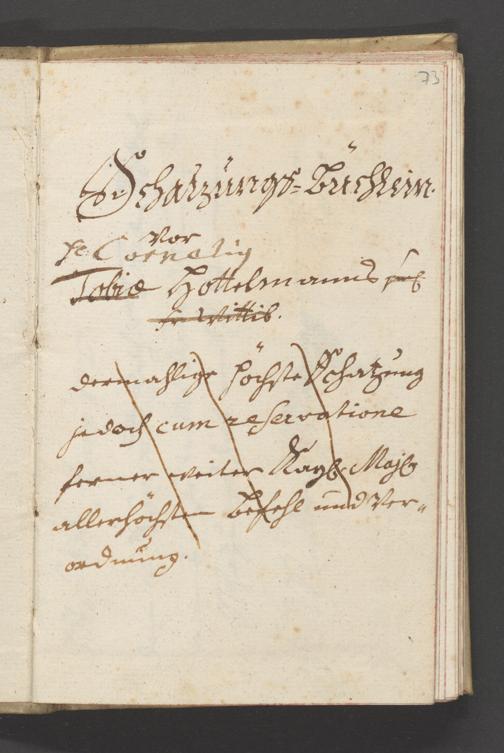 73
Schatzungs=Büchlein.
Vor
H: Cornelis
Tobiæ Hottelmanns seel
fr Wittib.
dermahlige höchste Schatzung
jedoch cum reservatione
ferner weiter Kayl. Majl
allerhöchsten Befehl und Ver=
ordnung.